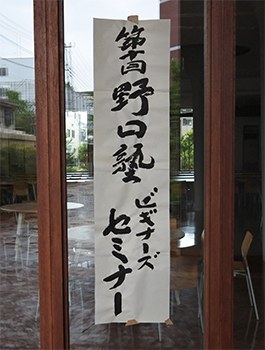 第十回野口塾
ビギナーズ
セミナー